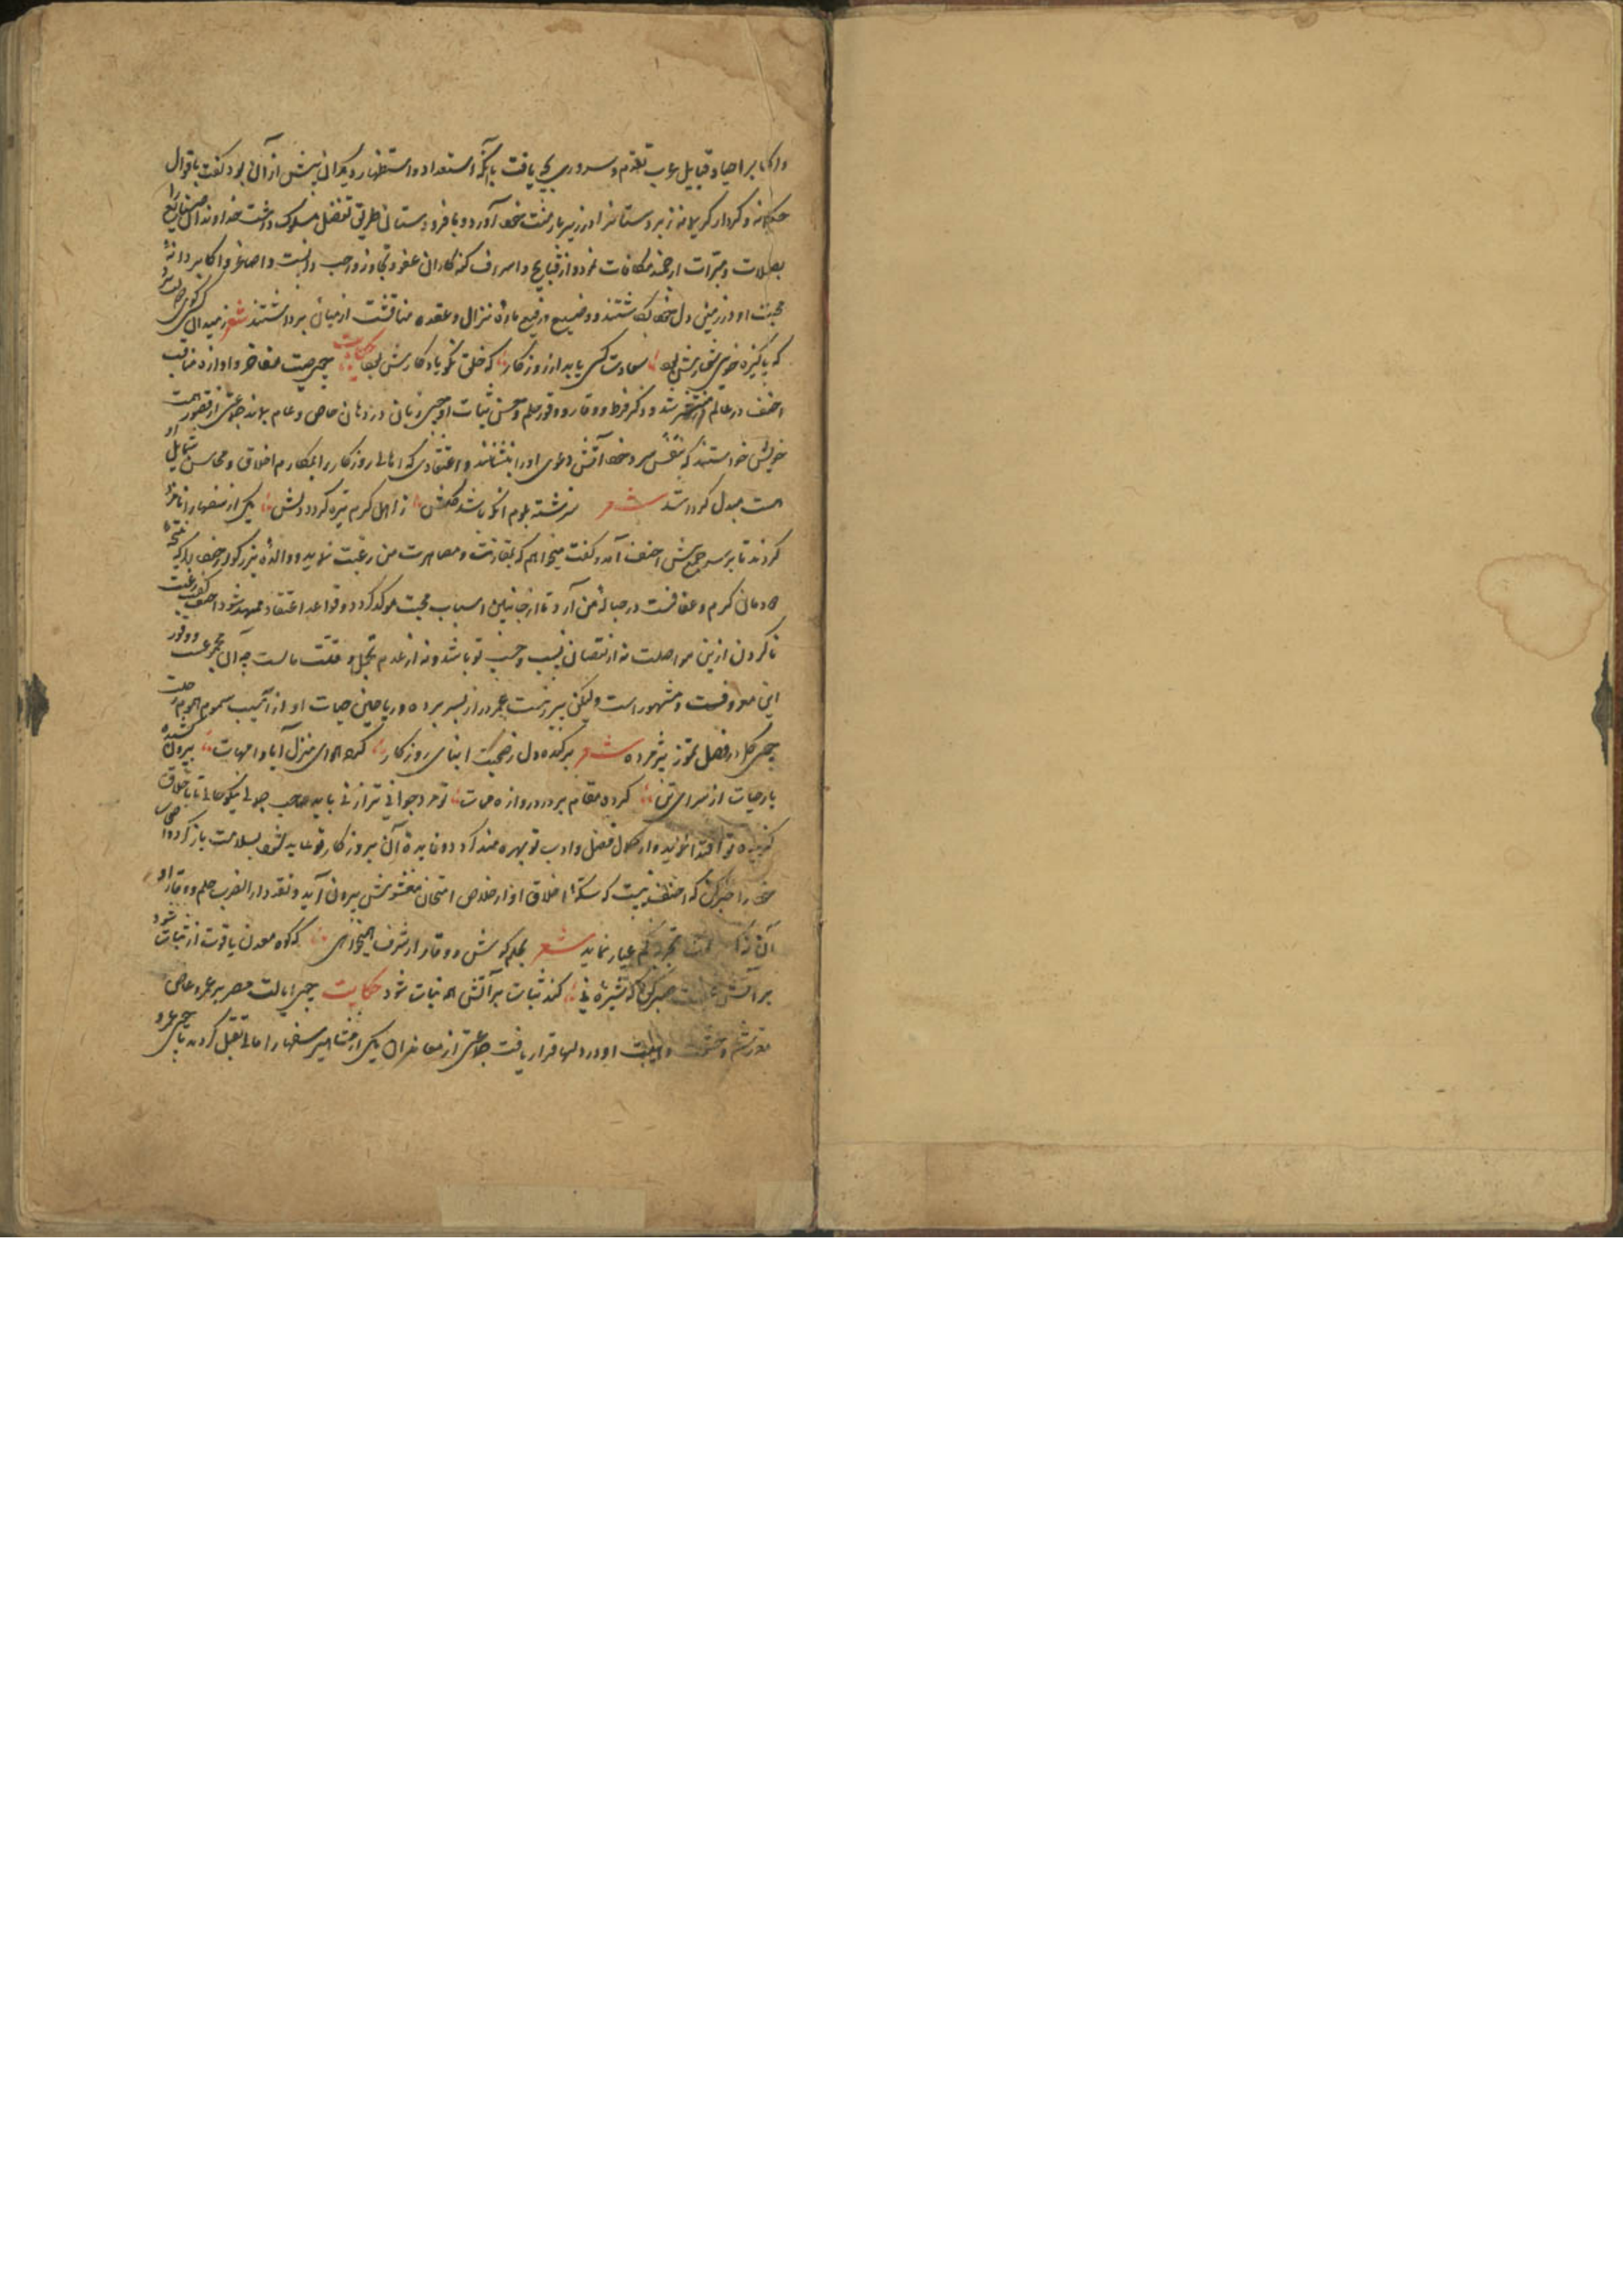 و اکابر احیا و قبایل عرب تقدم و سروری یافت با آنکه استعداد و استظهار دیگران بیش از آن بود گفت باقوال
حکیمانه و کردار کریمانه زبردستانرا در زیر بار منت خود آورد و با فرودستان طریق تفضل مسلوک داشت خداوندان صنایع را
بصلات و مبرات ارجمند مکافات نمود و از قبایح و اسراف گنه کاران عفو و تجاوز واجب دانست و اصاغر و اکابر دانهٔ
محبت او در زمین دل خود کاشتند و وضیع و رفیع مادهٔ نزال و عقده مناقشت از میان برداشتند شعر ز میدان کسی گوی
که پاکیزه خوی شعارش بود سعادت کسی یابد از روزگار که خلق نکو یادگارش بود حکایت چون صیت مفاخر و آوازه مناقب
احنف در عالم منتشر شد و ذکر فرط وقار و وفور حلم و حسن ثبات او چون زبان در دهان خاص و عام بماند جماعتی از قصور همت
خویش خواستند که بنفس سرد خود آتش دعوی او را بنشانند و اعتقادی که اهالی روزگار را بمکارم اخلاق و محاسن شمایل او
است مبدل گردد شعر سرشته بلوم آنکه باشد گلش ز اهل کرم تیره گردد دلش یکی از سفها را نامزد
کردند تا بر سر جمعش احنف آمد و گفت میخواهم که بمقارنت و مصاهرت من رغبت نماید و والدهٔ بزرگوار خود را که نتیجهٔ
دودمان کرم و عفافست در حبالهٔ من آرد تا از جانبین اسباب محبت موکد گردد و قواعد اعتقاد ممهد شود احنف گفت رغبت
ناکردن ازین مواصلت نه از نقصان نسب و حسب تو باشد و نه از عدم تجمل و قلت مالست چه آن مجموعست و وفور
این معروفست و مشهور است ولیکن پیرزنست عمر دراز بسر برده و ریاحین حیات او از آسیب سموم هموم
چون گل در فصل تموز پژمرده شعر برکنده دل ز صحبت ابنای روزگار کرده هوای منزل آبا و امهات بیرون کشیده
بار حیات از سرای تن کرده مقام بر در دروازه ممات تو مرد جوانی ترا زنی باید صاحب جمال نیکو خصال تا باخلاق
گزیده تو اقتدا نماید و از کمال فضل و ادب تو بهره مند گردد و فایدهٔ آن بروزگار تو عاید شود بسلامت باز گرد و اصحاب
خود را خبر کن که احنف نیست که سکهٔ اخلاق او از خلاص امتحان مغشوش بیرون آید و نقد دار الضرب حلم و وقار او
آن نه که بمحک تجربه کم عیار نماید شعر بحلم کوش و وقار ار شرف همی خواهی که کوه معدن یاقوت از ثبات شود
بر آتش صبر کن که شیرهٔ نی کند ثبات بر آتش که نبات شود حکایت چون ایالت مصر بر عمرو عاص
مقرر شد و حشمت و هیبت او در دلها قرار یافت جماعتی از معاندان یکی از مشاهیر سفها را مالی تقبل کردند تا چون عمرو